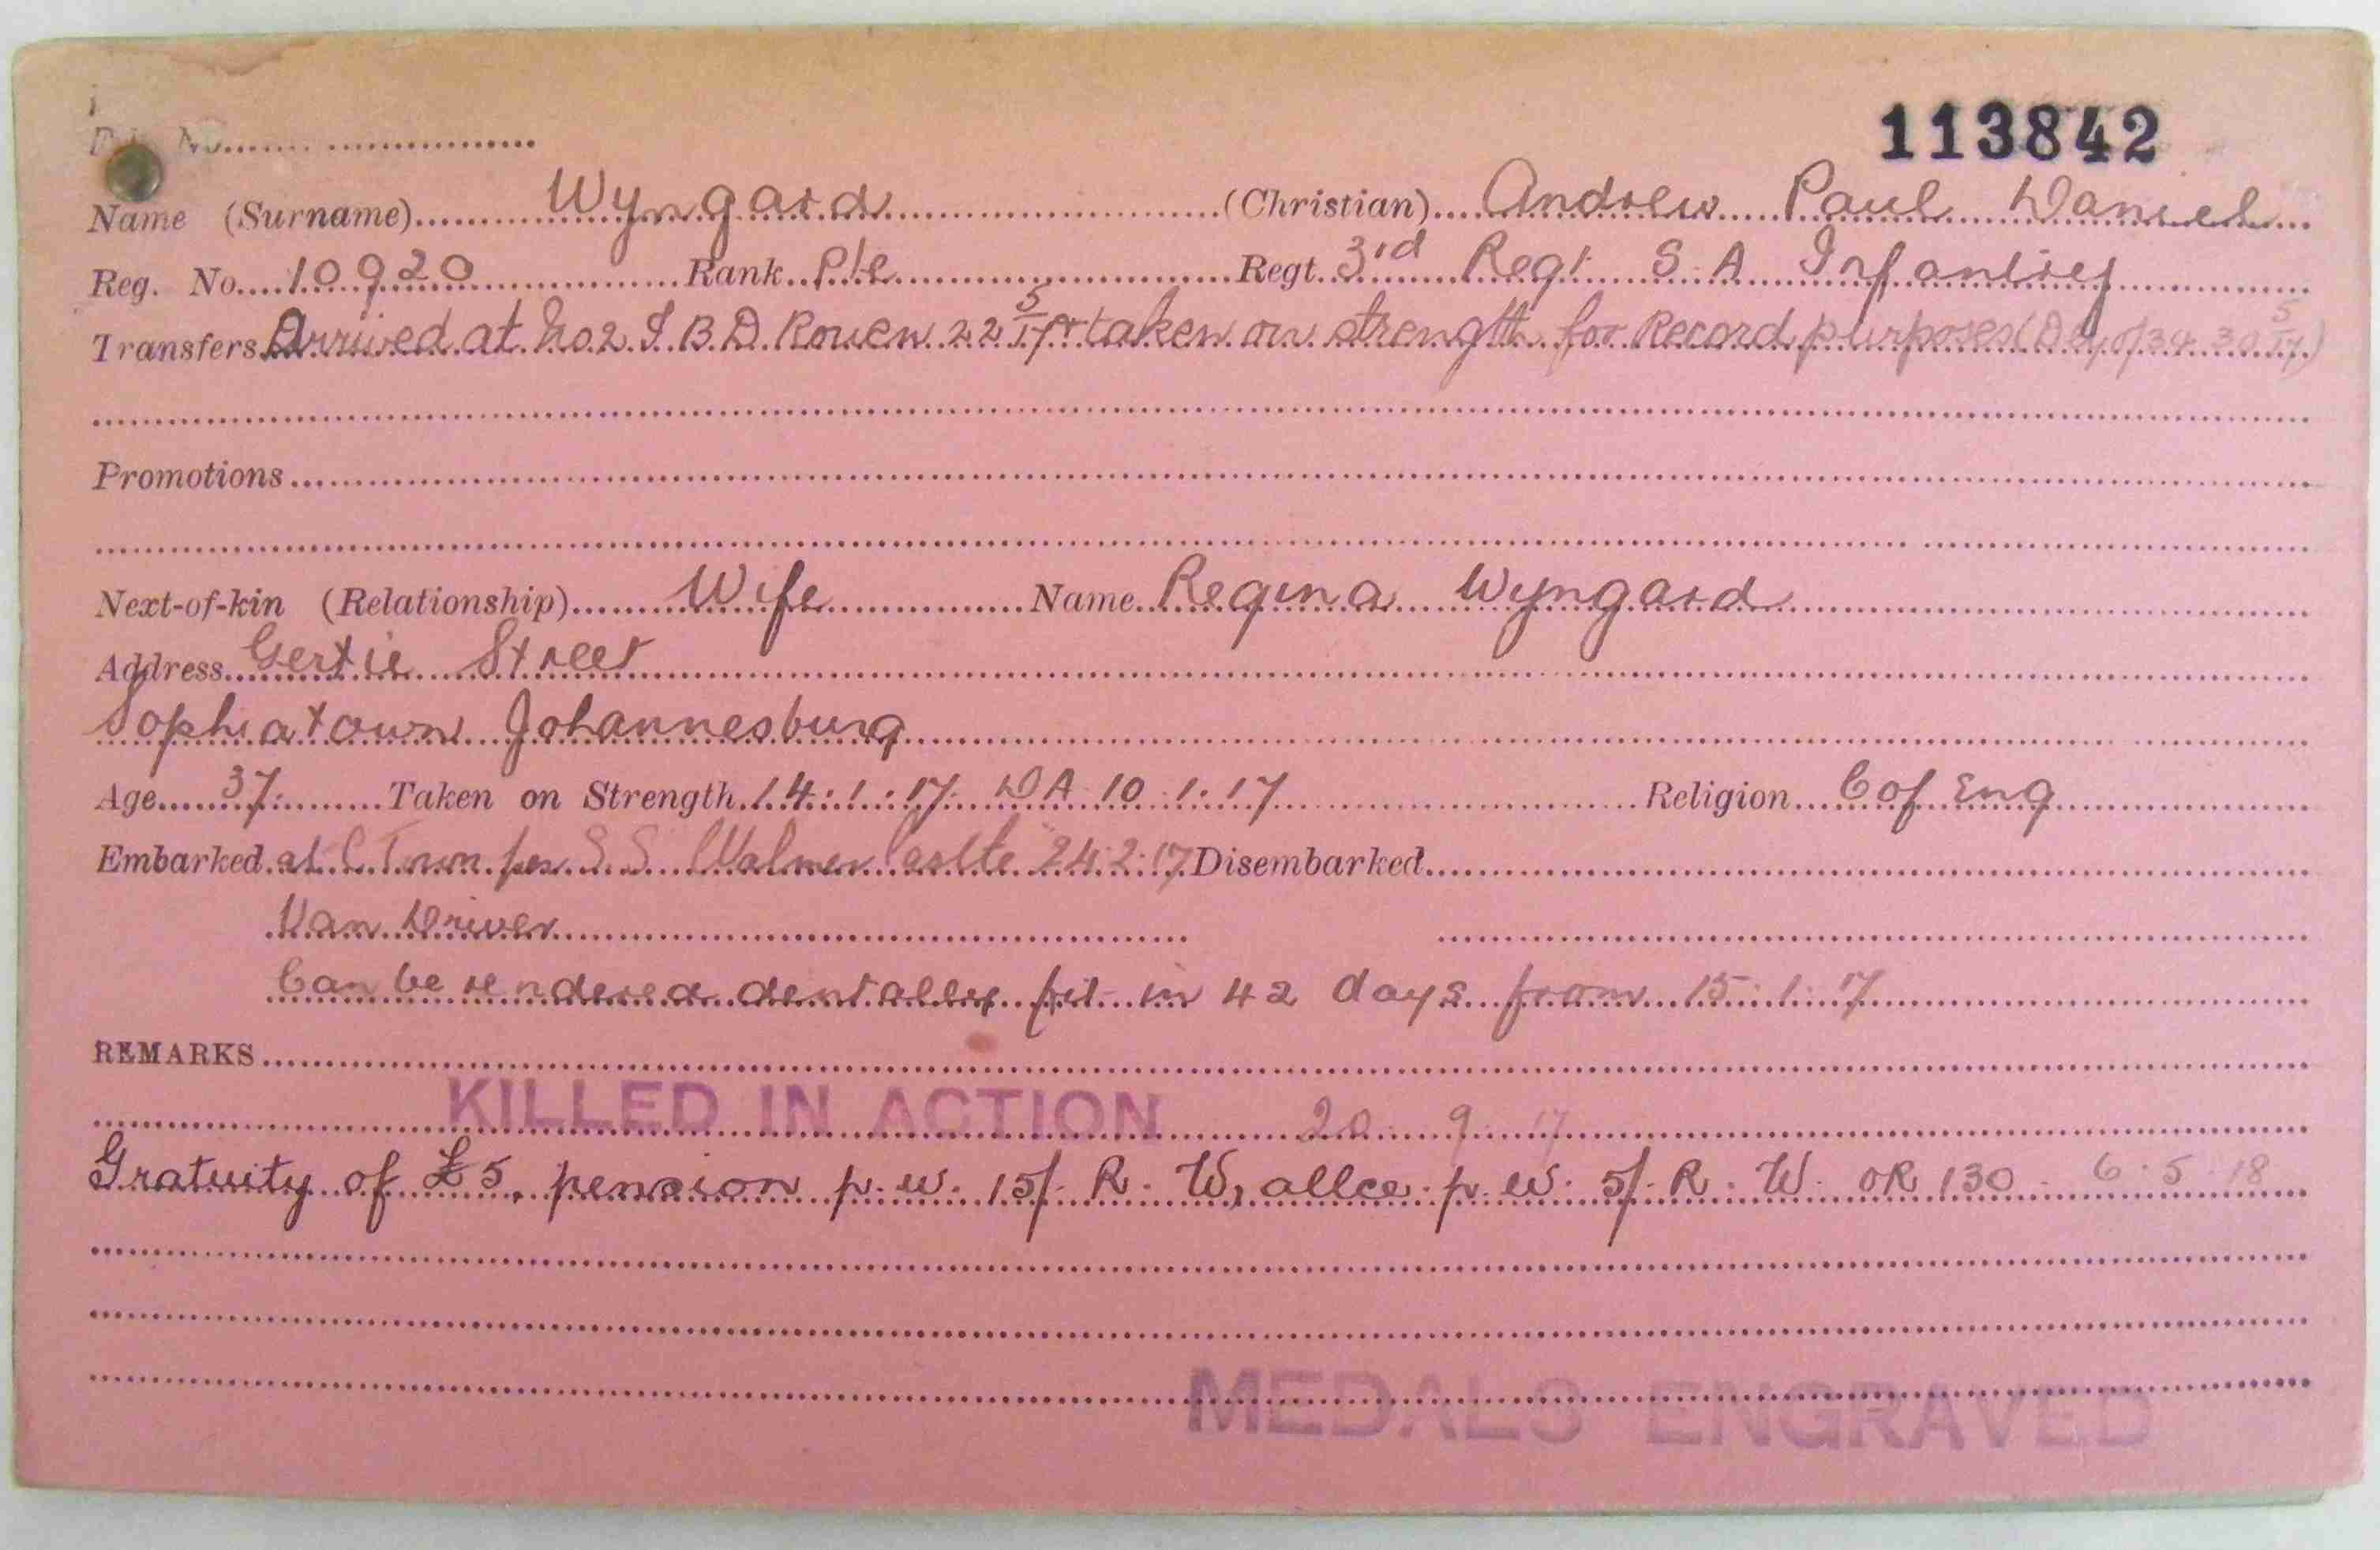 113842
No.
Name (Surname) Wyngard (Christian) Andrew Paul Daniel
Reg. No. 10920 Rank Pte Regt. 3rd Regt S. A. Infantry
Transfers Arrived at No 2 I B D Rouen 22 5/17 & taken on strength for Record purposes (D of 34 30 5/17)
Promotions
Next-of-kin (Relationship) Wife Name Regina Wyngard
Address Gertie Street
Sophiatown Johannesburg
Age 37 Taken on Strength 14.1.17 DA 10.1.17 Religion C of Eng
Embarked at C Town per S.S. Walmer Castle 24.2.17 Disembarked
Van Driver
Can be rendered dentally fit in 42 days from 15.1.17
REMARKS
KILLED IN ACTION 20 9 17
Gratuity of £5, pension p.w. 15/- R. W, allce. p.w. 5/- R. W. OR 130 6.5.18
MEDALS ENGRAVED